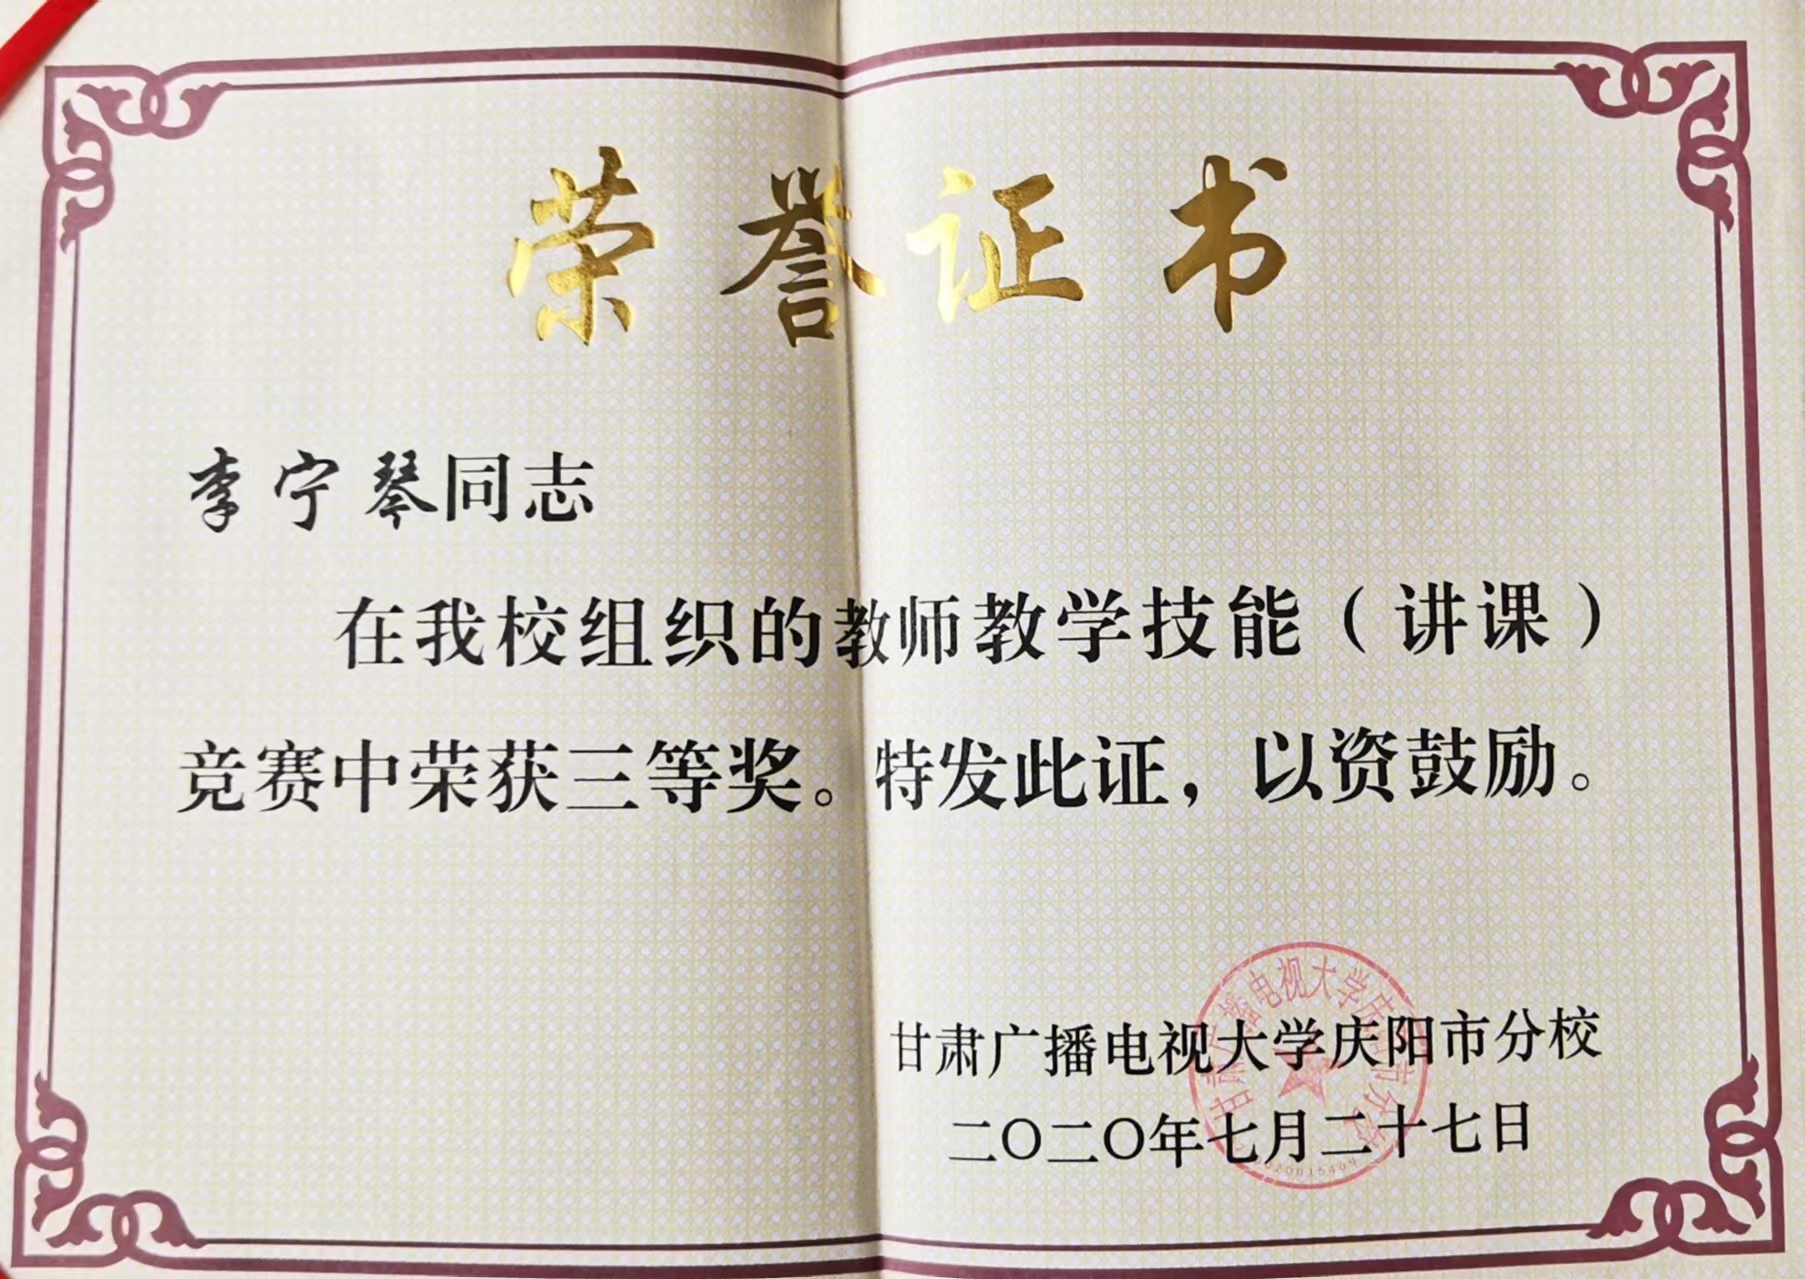 荣誉证书
李宁琴同志
在我校组织的教师教学技能（讲课）
竞赛中荣获三等奖。特发此证，以资鼓励。
甘肃广播电视大学庆阳市分校
二〇二〇年七月二十七日
甘肃广播电视大学庆阳市分校